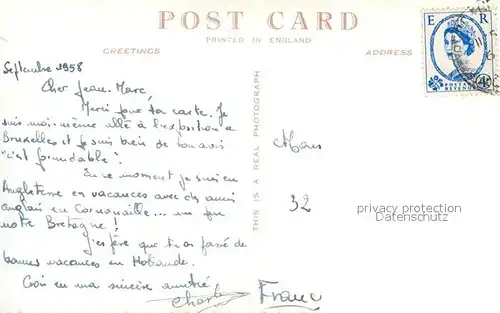 POST CARD
PRINTED IN ENGLAND
GREETINGS
ADDRESS
E R
POSTAGE
REVENUE
Septembre 1958
Cher Jean-Marc,
Merci pour ta carte. Je
suis moi-même allé à l'exposition à
Bruxelles et je suis bien de ton avis
"c'est formidable".
En ce moment je suis en
Angleterre en vacances avec des amis
anglais en Cornouaille... un peu
notre Bretagne !
J'espère que tu as passé de
bonnes vacances en Hollande.
Crois en ma sincère amitié,
THIS IS A REAL PHOTOGRAPH
32
privacy protection
Datenschutz
France